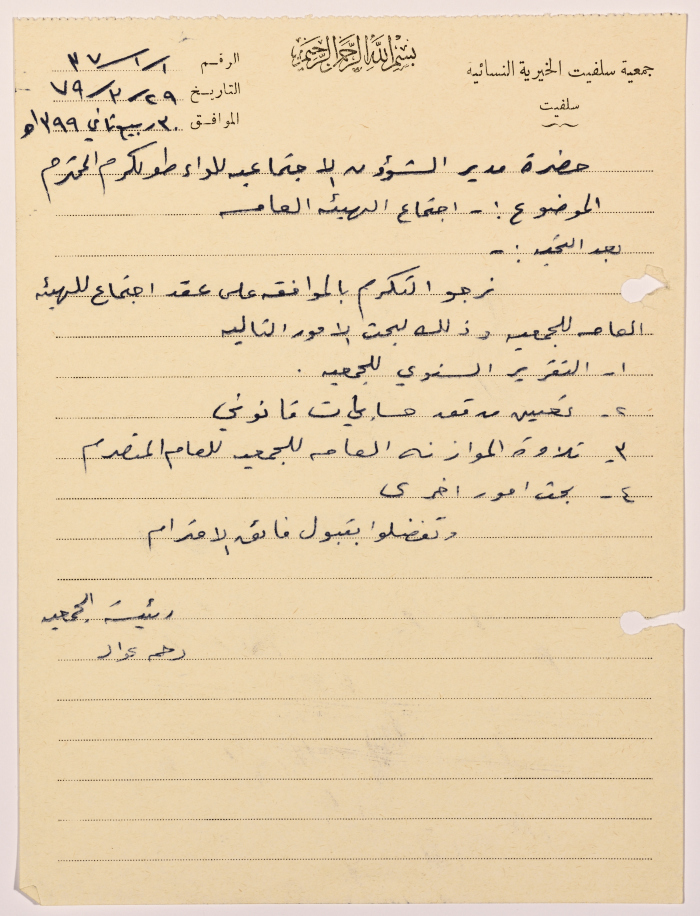 بسم الله الرحمن الرحيم
جمعية سلفيت الخيرية النسائيه
سلفيت
الرقم ٣٧/١/١
التاريخ ٧٩/٣/٢٩
الموافق ٣٠ ربيع ثاني ١٣٩٩هـ
حضرة مدير الشؤون الاجتماعيه للواء طولكرم المحترم
الموضوع :- اجتماع الهيئه العامه
بعد التحيه :-
نرجو التكرم بالموافقه على عقد اجتماع للهيئه
العامه للجمعيه وذلك لبحث الامور التاليه
١- التقرير السنوي للجمعيه .
٢- تعيين مدقق حسابات قانوني
٣- تلاوة الموازنه العامه للجمعيه للعام المنصرم
٤- بحث امور اخرى
وتفضلوا بقبول فائق الاحترام
رئيسة الجمعيه